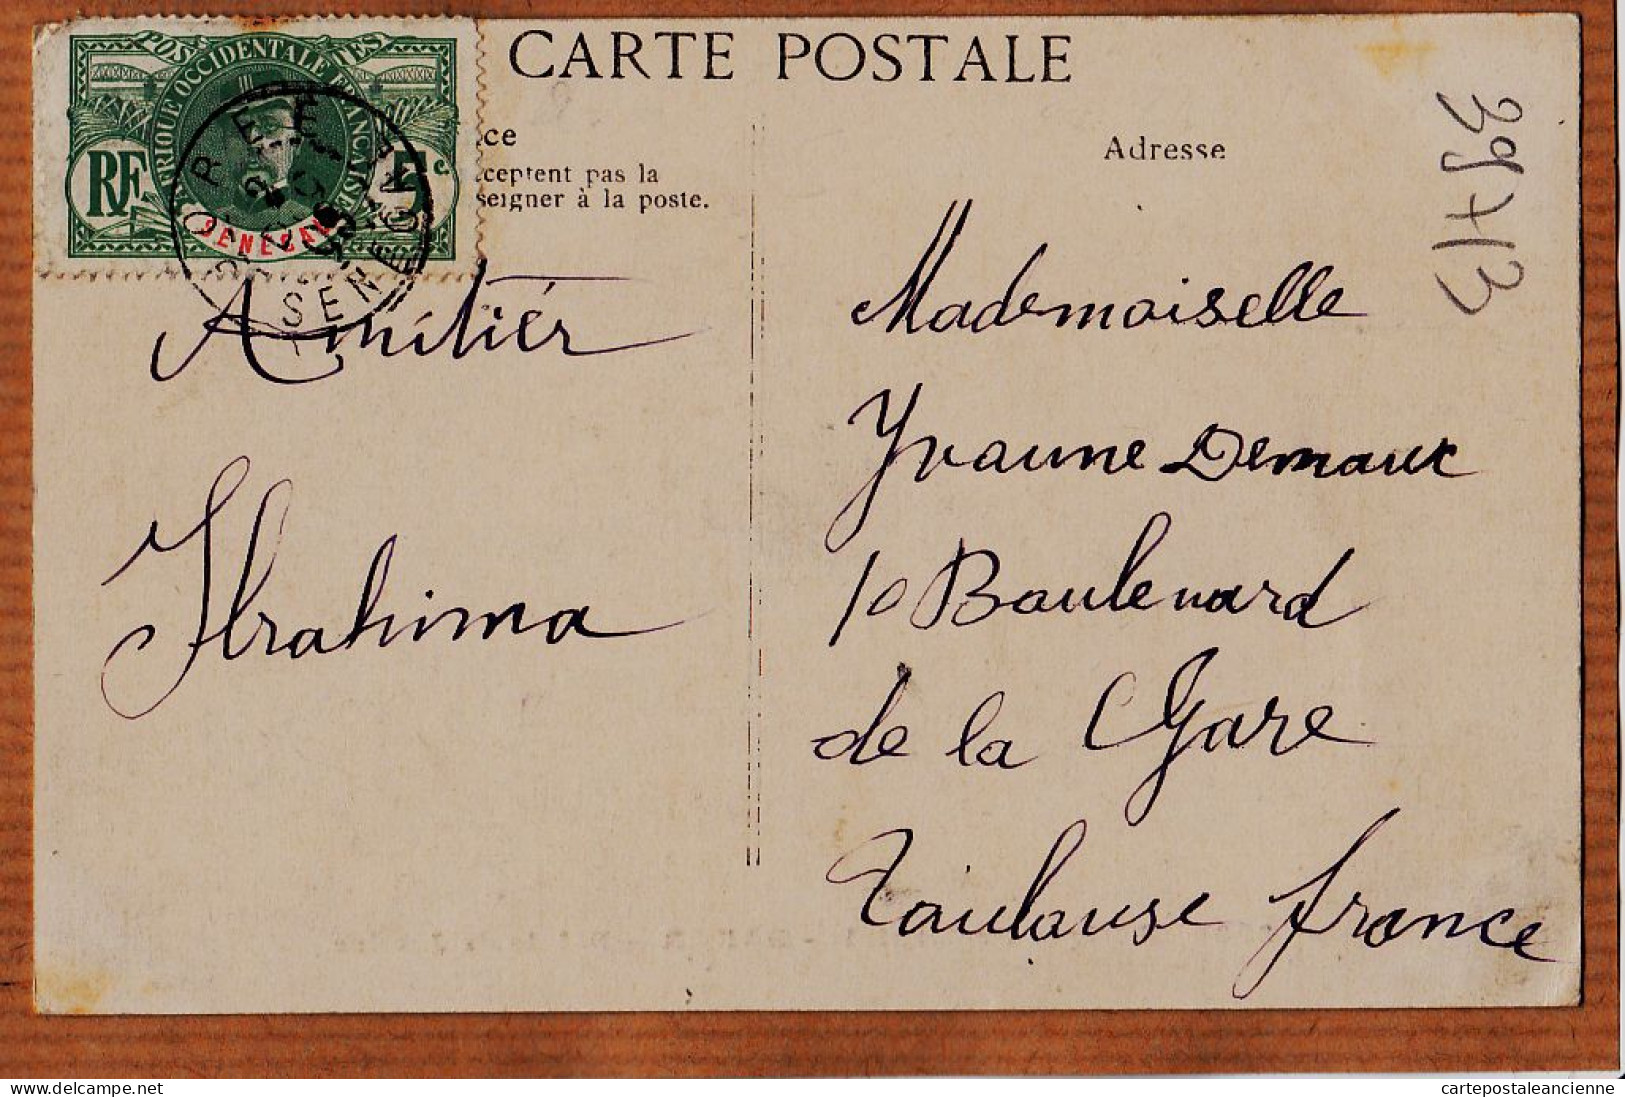 CARTE POSTALE
POS TES
AFRIQUE OCCIDENTALE FRANÇAISE
RF 5 c
SÉNÉGAL
SEN
ce
ceptent pas la
seigner à la poste.
Adresse
39+13
Amitiér
Ibrahima
Mademoiselle
Yvonne Demaux
10 Boulevard
de la Gare
Toulouse france
delcampe.net
cartepostaleancienne